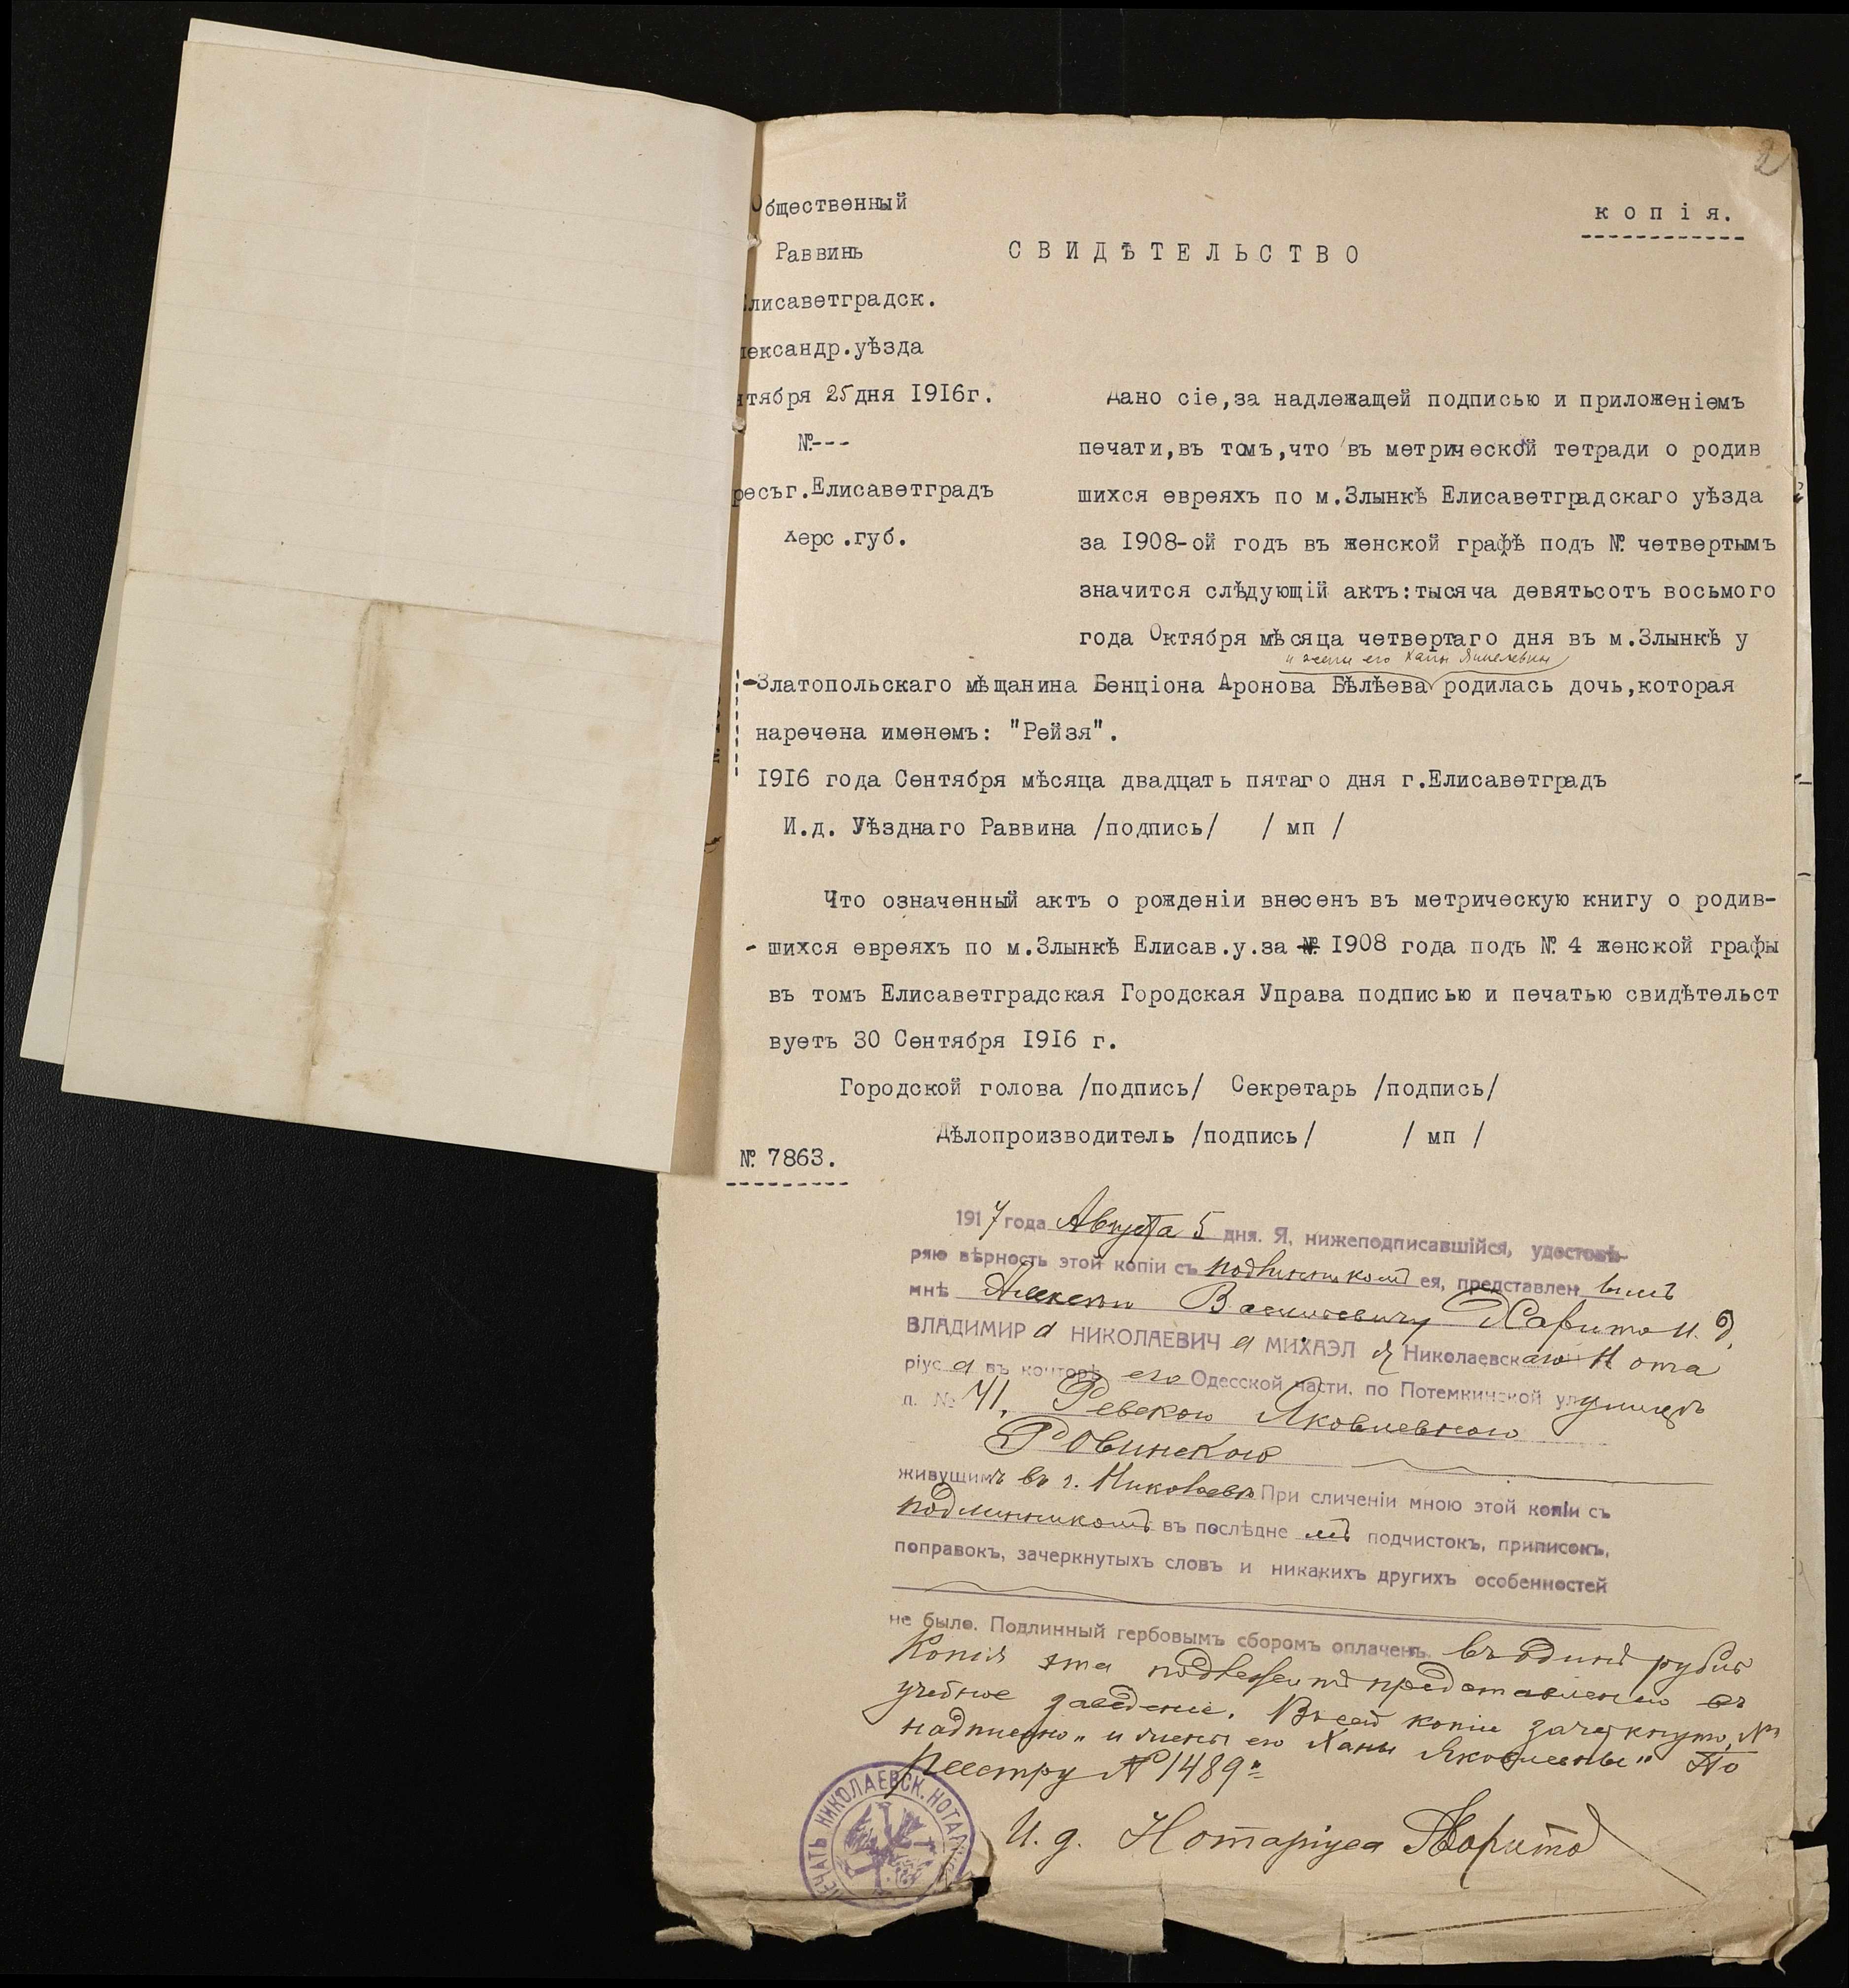 2
копія.
Общественный
Раввинъ
СВИДѢТЕЛЬСТВО
Елисаветградск.
лександр.уѣзда
нтября 25 дня 1916г.
№---
ресъ г.Елисаветградъ
Херс.губ.
Дано сіе,за надлежащей подписью и приложеніемъ
печати,въ томъ,что въ метрической тетради о родив
шихся евреяхъ по м.Злынкѣ Елисаветградскаго уѣзда
за 1908-ой годъ въ женской графѣ подъ № четвертымъ
значится слѣдующій актъ:тысяча девятьсотъ восьмого
года Октября мѣсяца четвертаго дня въ м.Злынкѣ у
и жены его Ханы
-Златопольскаго мѣщанина Бенціона Аронова Бѣлѣева родилась дочь,которая
наречена именемъ: "Рейзя".
1916 года Сентября мѣсяца двадцать пятаго дня г.Елисаветградъ
И.д. Уѣзднаго Раввина /подпись/ / мп /
Что означенный актъ о рожденіи внесенъ въ метрическую книгу о родив-
- шихся евреяхъ по м.Злынкѣ Елисав.у.за № 1908 года подъ № 4 женской графы
въ томъ Елисаветградская Городская Управа подписью и печатью свидѣтельст
вуетъ 30 Сентября 1916 г.
Городской голова /подпись/ Секретарь /подпись/
Дѣлопроизводитель /подпись/ / мп /
№ 7863.
1917 года Августа 5 дня. Я, нижеподписавшійся, удостовѣ-
ряю вѣрность этой копіи съ подлинникомъ ея, представленнымъ
мнѣ Алексѣю Васильевичу Харито и. д.
ВЛАДИМИРа НИКОЛАЕВИЧа МИХАЭЛ Николаевскаго Нота
ріуса въ конторѣ его Одесской части, по Потемкинской улицѣ
д. № 41, Ревекою Яковлевною
Ровинскою
живущимъ въ г. Николаевѣ При сличеніи мною этой копіи съ
подлинникомъ въ послѣднемъ подчистокъ, приписокъ,
поправокъ, зачеркнутыхъ словъ и никакихъ другихъ особенностей
не было. Подлинный гербовымъ сборомъ оплаченъ. въ одинъ рубль
Копія эта подлежитъ представленію въ
учебное заведеніе. Въ сей копіи зачеркнуто „№"
надписано „и жены его Ханы Яковлевны" По
реестру № 1489.
И. д. Нотаріуса Харито
ПЕЧАТЬ НИКОЛАЕВСК. НОТАР